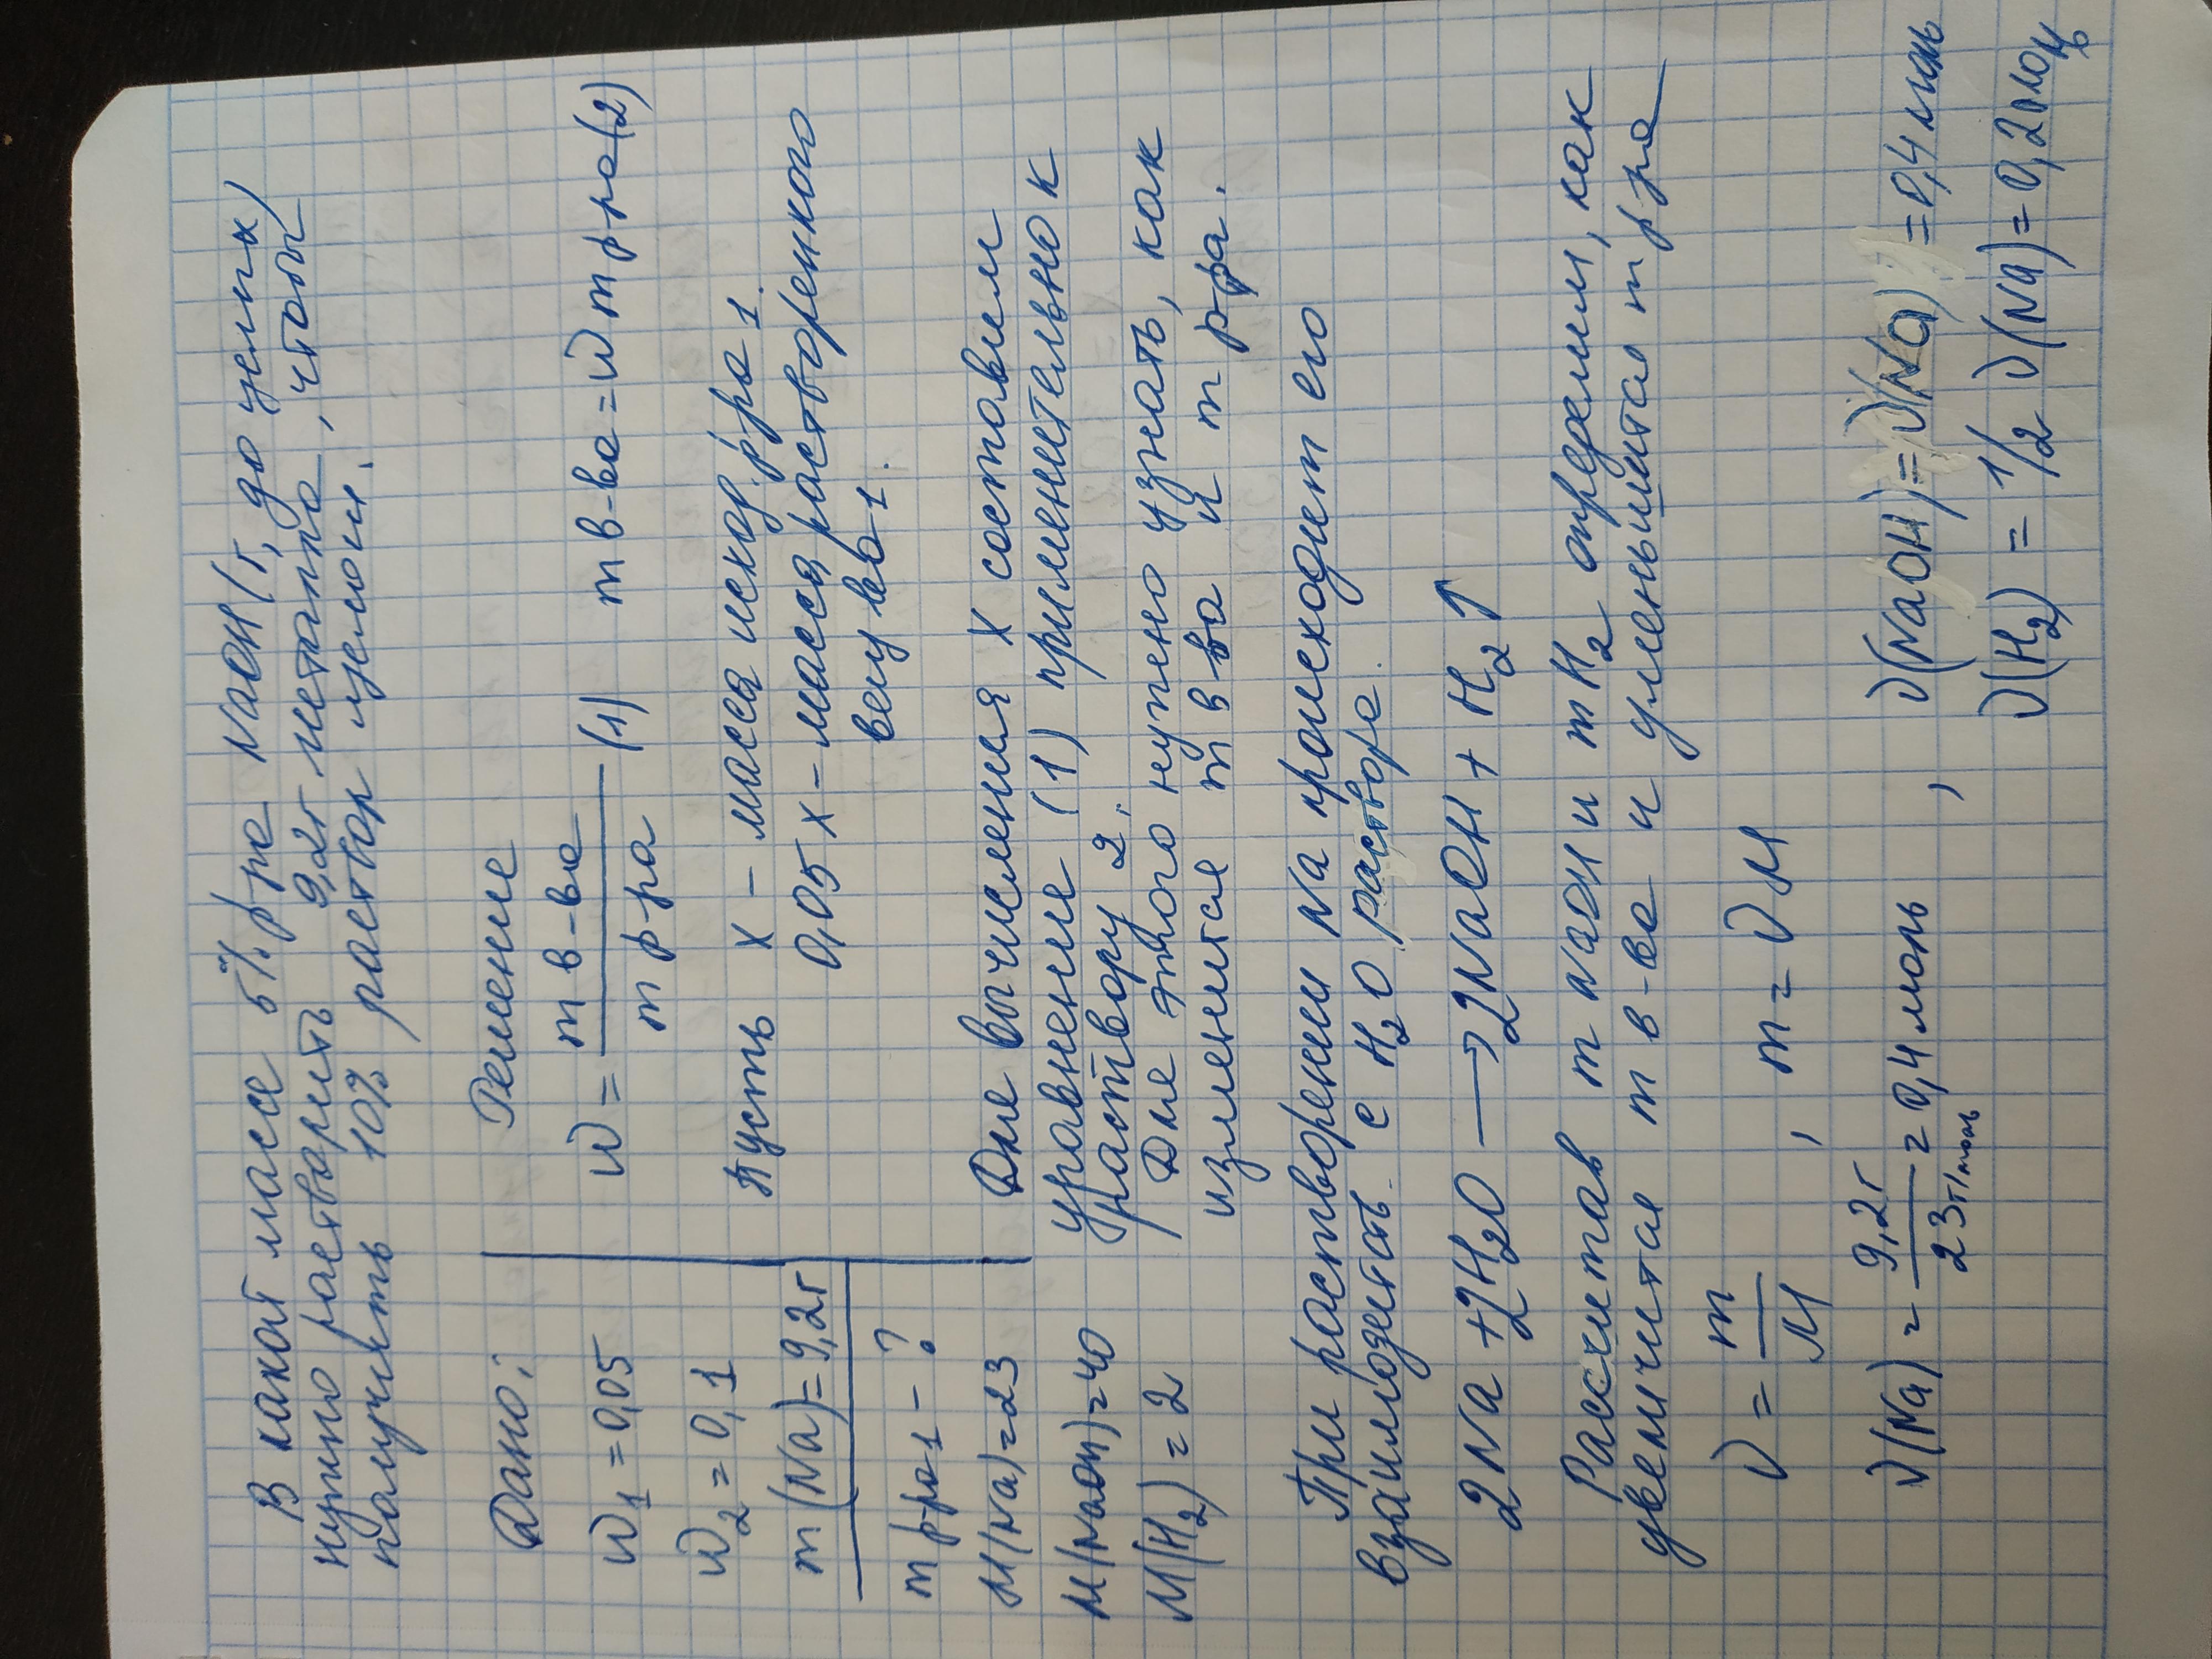 В какой массе 5% р-ра NaOH (г, до целых)
нужно растворить 9,2г металла, чтобы
получить 10% раствор щелочи.
Дано:
Решение
ω1 = 0,05
ω2 = 0,1
m(Na) = 9,2г
m р-ра1 - ?
M(Na) = 23
M(NaOH) = 40
M(H2) = 2
ω = m в-ва / m р-ра (1) m в-ва = ω m р-ра (2)
Пусть x - масса исход. р-ра 1.
0,05x - масса растворенного
вещ-ва 1.
Для вычисления x составим
уравнение (1) применительно к
раствору 2.
Для этого нужно узнать, как
изменится m в-ва и m р-ра.
При растворении Na происходит его
взаимодейст. с H2O раствора.
2Na + 2H2O → 2NaOH + H2↑
Рассчитав m NaOH и m H2 определим, как
увеличится m в-ва и уменьшится m р-ра
ν = m / M , m = νM
ν(Na) = 9,2г / 23г/моль = 0,4 моль , ν(NaOH) = ν(Na) = 0,4 моль
ν(H2) = 1/2 ν(Na) = 0,2 моль